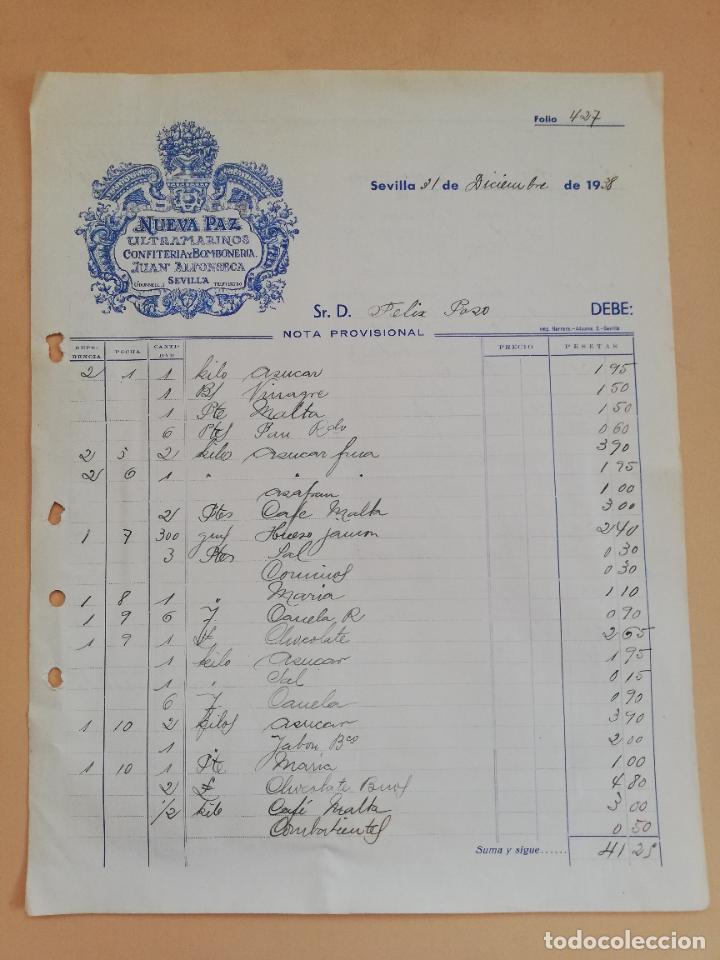 Folio 427
Sevilla 31 de Diciembre de 1938
NUEVA PAZ
ULTRAMARINOS
CONFITERIA Y BOMBONERIA
JUAN ALFONSECA
SEVILLA
Sr. D. Felix Pozo DEBE:
NOTA PROVISIONAL
REFE-RENCIA FECHA CANTI-DAD PRECIO PESETAS
2 1 1 kilo azucar 1 95
1 Bl Vinagre 1 50
1 Pte Malta 1 50
6 Ptes Pan Rdo 0 60
2 5 2 kilos azucar fina 3 90
2 6 1 " " " 1 95
azafran 1 00
2 Ptes Cafe Malta 3 00
1 7 300 grs Hueso jamon 2 40
3 Ptes Sal 0 30
Cominos 0 30
1 8 1 " Maria 1 10
1 9 6 Canela R 0 90
1 9 1 Chocolate 2 65
1 kilo azucar 1 95
1 " Sal 0 15
6 Canela 0 90
1 10 2 kilos azucar 3 90
1 " Jabon Bco 2 00
1 10 1 Pte Maria 1 00
2 Chocolate 4 80
1/2 kilo Café Malta 3 00
Combatientes 0 50
Suma y sigue...... 41 25
todocoleccion
todocoleccion.net